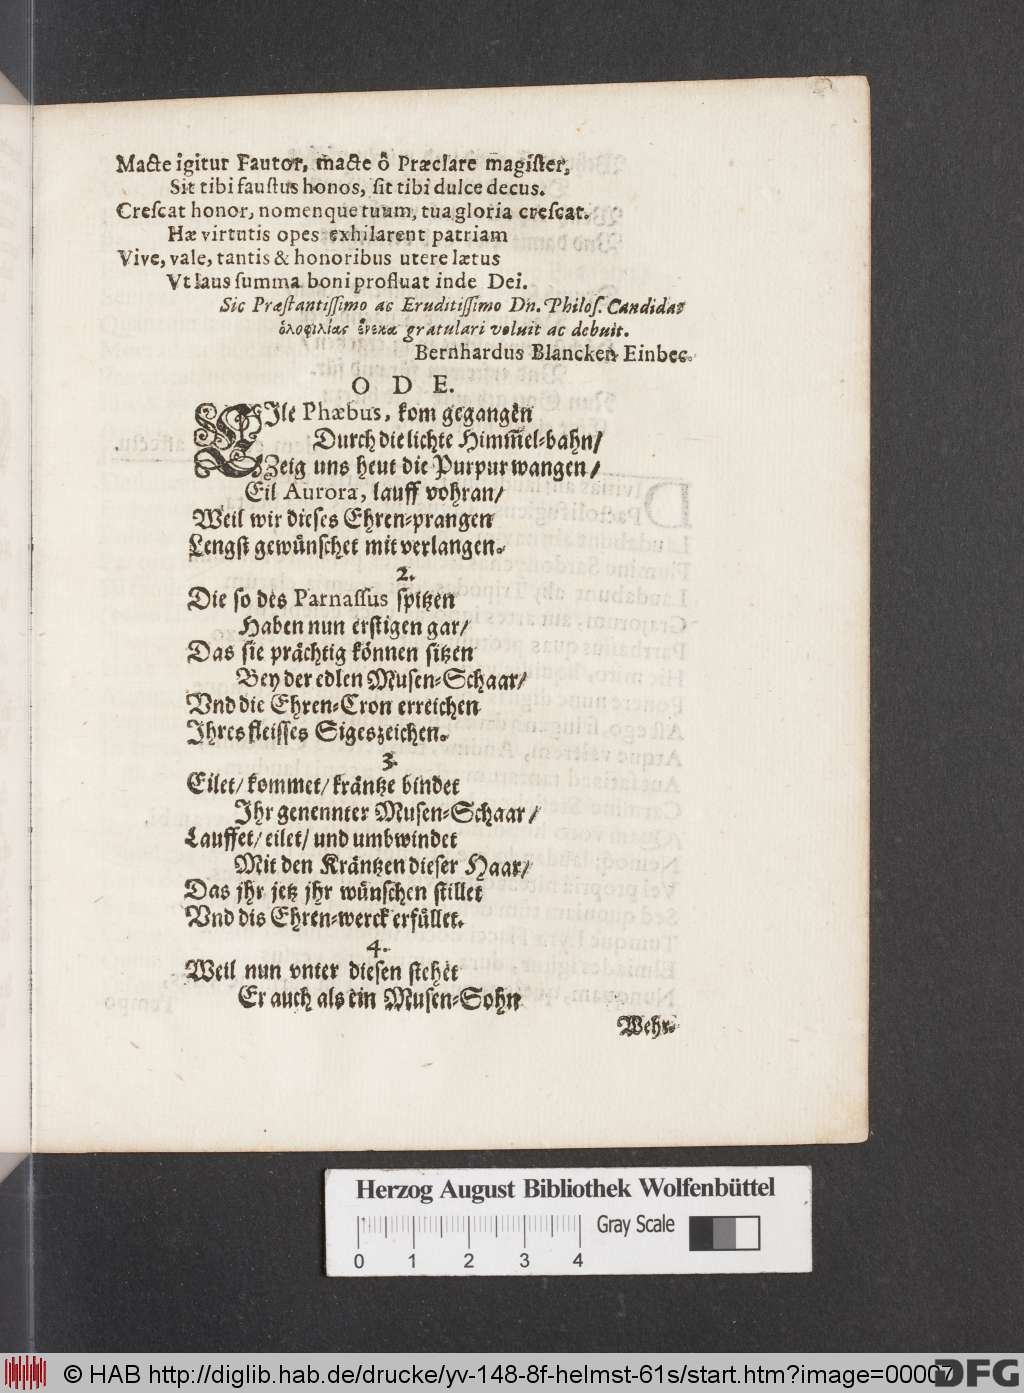 Macte igitur Fautor, macte ô Præclare magiſter,
Sit tibi fauſtus honos, ſit tibi dulce decus.
Creſcat honor, nomenque tuum, tua gloria creſcat.
Hæ virtutis opes exhilarent patriam
Vive, vale, tantis & honoribus utere lætus
Vt laus ſumma boni profluat inde Dei.
Sic Præſtantiſſimo ac Eruditiſſimo Dn. Philoſ. Candidat
ὁλοφιλίας ἕνεκα gratulari voluit ac debuit.
Bernhardus Blancken Einbec.
O D E.
EJle Phæbus, kom gegangen
Durch die lichte Him̃el-bahn/
Zeig uns heut die Purpur wangen/
Eil Aurora, lauff vohran/
Weil wir dieſes Ehren-prangen
Lengſt gewuͤnſchet mit verlangen.
2.
Die ſo des Parnaſſus ſpitzen
Haben nun erſtigen gar/
Das ſie praͤchtig koͤnnen ſitzen
Bey der edlen Muſen-Schaar/
Vnd die Ehren-Cron erreichen
Jhres fleiſſes Sigeszeichen.
3.
Eilet/ kommet/ kraͤntze bindet
Jhr genennter Muſen-Schaar/
Lauffet/ eilet/ und umbwindet
Mit den Kraͤntzen dieſer Haar/
Das jhr jetz jhr wuͤnſchen ſtillet
Vnd dis Ehren-werck erfuͤllet.
4.
Weil nun vnter dieſen ſtehet
Er auch als ein Muſen-Sohn
Wehr-
Herzog August Bibliothek Wolfenbüttel
Gray Scale
0 1 2 3 4
© HAB http://diglib.hab.de/drucke/yv-148-8f-helmst-61s/start.htm?image=00007
DFG